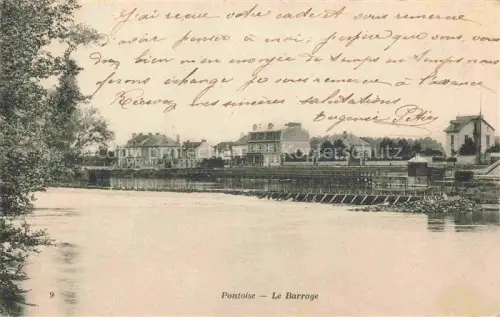 J'ai reçue votre cadet vous remercie
d'avoir penser à moi; j'espère que vous vous
bien m'en envoyée de temps en temps nous
ferons échange je vous remercie à l'avance
Recevez mes sincères salutations
Eugénie
9
Pontoise — Le Barrage